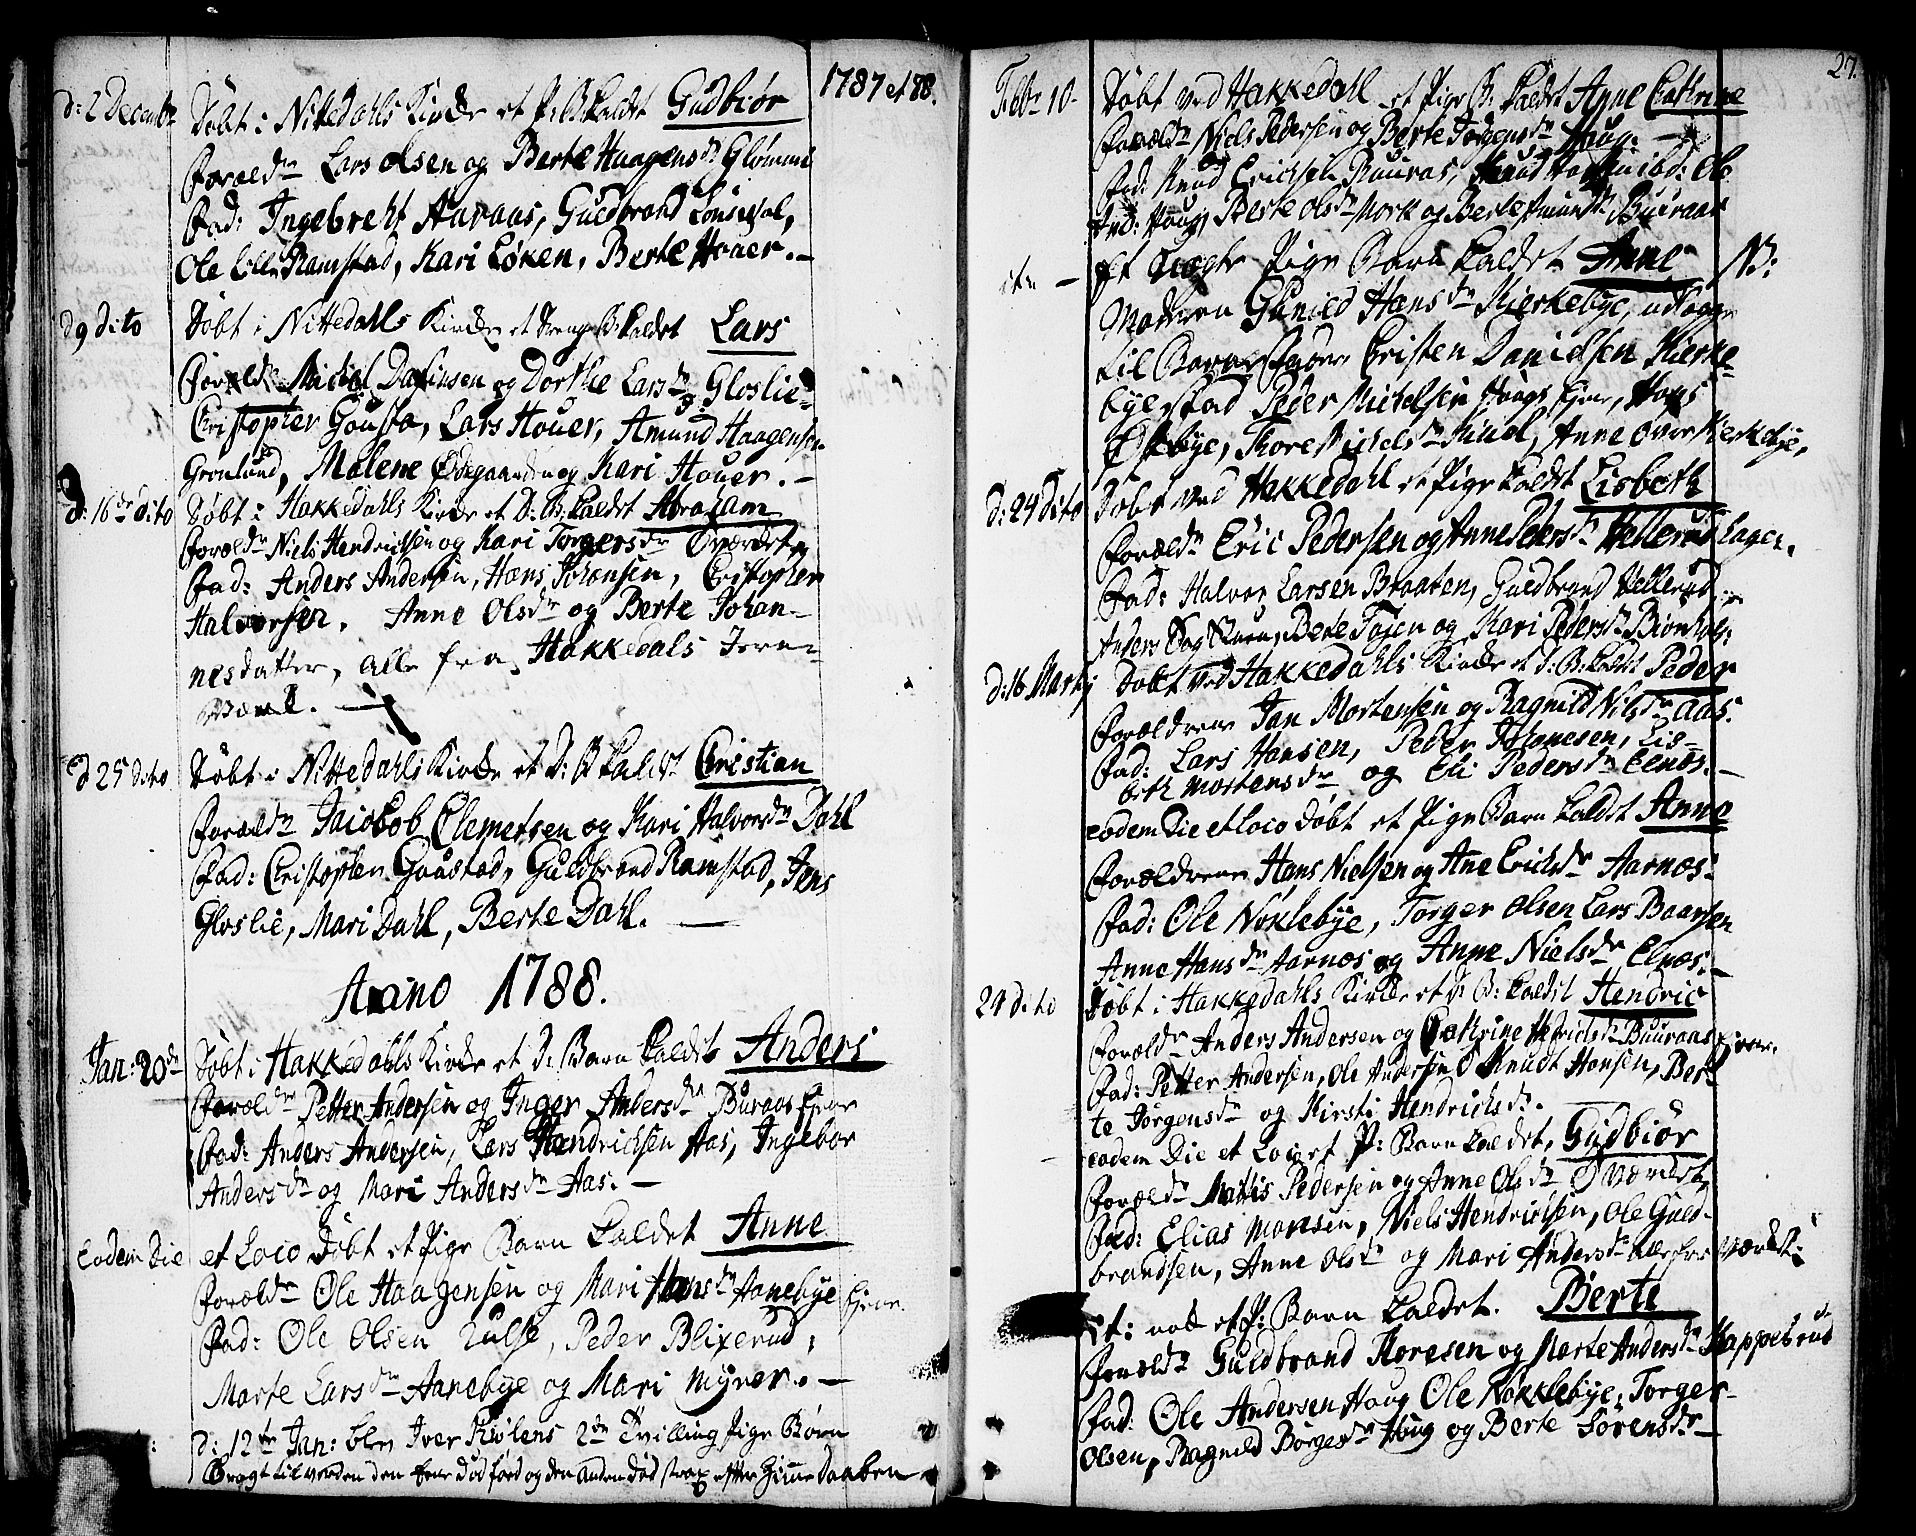 1787 et 88.
d: 2 Decembr Döbt i Nittedahls Kirke et P: B: kaldet Gudbiör
Foræld.re Lars Olsen og Berte Haagensd.r Glömmi
Fad: Ingebreht Aaraas, Guldbrand
Ole Ramstad, Kari Löken, Berte Houer.
d 9 dito Döbt i Nittedahls Kirke et Drenge B: kaldet Lars
Foræld.re Michel og Dorthe Larsd.r Gloslie
Christopher Gousta, Lars Houer, Amund Haagensen
Gronlund, Malene Ödegaarden og Kari Houer.
d: 16 de dito Döbt i Hakkedahls Kirke et D: B: kaldet Abraham
Foræld.re Niels Hendrichsen og Kari Torgersd.r
Fad: Anders Andersen, Hans Johansen, Cristopher
Halvorsen, Anne Olsd.r og Berte Johan-
nesdatter, alle fra Hakkedals Jern-
værk.
d 25 dito Döbt i Nittedahls Kirke et D: B kaldet Christian
Foræld.re Jacob Clemetsen og Kari Halvorsd.r Dahl
Fad: Christopher Goustad, Guldbrand Ramstad, Jens
Gloslie, Mari Dahl, Berte Dahl.
Anno 1788.
Jan: 20 de Döbt i Hakkedahls Kirke et D: Barn kaldet Anders
Foræld.re Petter Andersen og Inger Andersd.r Buraas Ejere
Fad: Anders Andersen, Lars Hendrichsen Aas, Ingebor
Andersd.r og Mari Andersd.r Aas.
Eodem Die et Loco Döbt et Pige Barn kaldet Anne
Foræld.re Ole Haagensen og Mari Hansd.r Aanebye
Fad: Ole Olsen, Peder Blixerud,
Marte Larsd.r Aanebye og Mari Myrer.
d: 12 te Jan: blev Iver Kiölens 2 de Tvilling Pige Börn
Bragt til verden den ene död föd og den anden död strax efter Hiemedaaben
27.
Febr 10 Döbt ved Hakkedall et Pige B: kaldet Anne Cathrine
Foræld.re Niels Pedersen og Berte Jörgensd.r Haug
Fad: Knud Erichsen Buuras, ibid: Ole
And: Houg, Berte Olsd.r Mork og Berte Amunsd.r Buuraas
Et Uægte Pige Barn kaldet Anne NB:
Moderen Gunild Hansd.r Kierkebye, udlagge
til Barnefader Cristen Danielsen Kierke-
bye, Fad Peder Michelsen Haugs Ejere, Hans
Östbye, Thore Michelsd.r, Anne over Kierkebye,
d: 24 dito Döbt ved Hakkedahl et Pige kaldet Lisbeth
Foræld.re Eric Pedersen og Anne Pedersd.r Hellerud
Fad: Halvor Larsen Braaten, Guldbrand Hellerud
Anders, Berte Tösen og Kari Pedersd.r
d: 16 Martij Döbt ved Hakkedahls Kirke et D: B: kaldet Peder
Forældrene Jan Mortensen og Ragnild Nilsd.r Aas.
Fad: Lars Hansen, Peder Johanesen, Lis-
beth Mortensd.r og Eli Pedersd.r Elnæs.
eodem Die et loco Döbt et Pige Barn kaldet Anne
Forældrene Hans Nielsen og Ane Erichsd.r Aarnæs:
Fad: Ole Nöklebye, Torger Olsen Lars Baarsen
Anne Hansd.r Aarnæs og Anne Nielsd.r Elnæs.
24 dito Döbt i Hakkedahls Kirke et D: B: kaldet Hendric
Foræld.re Anders Andersen og Cathrine Hedrichsd.r Buuraas Ejere.
Fad: Petter Andersen, Ole Andersen Knudt Hansen, Ber-
te Jörgensd.r og Kirsti Hendrichsd.r.
eodem Die et Loco et P: Barn kaldet, Gudbiör
Foræld.re Mattis Pedersen og Anne Olsd.r
Fad: Elias Monsen, Niels Hendrichsen, Ole Guld-
brandsen, Anne Olsd.r og Mari Andersd.r alle fra Værket:
et P: Barn kaldet. Berte
Foræld.re Guldbrand Thoresen og Marte Andersd.r Kappelsrud
Fad: Ole Andersen Haug Ole Nökklebye, Torger
Olsen, Ragnild Börgesd.r Houg og Berte Sörensd.r